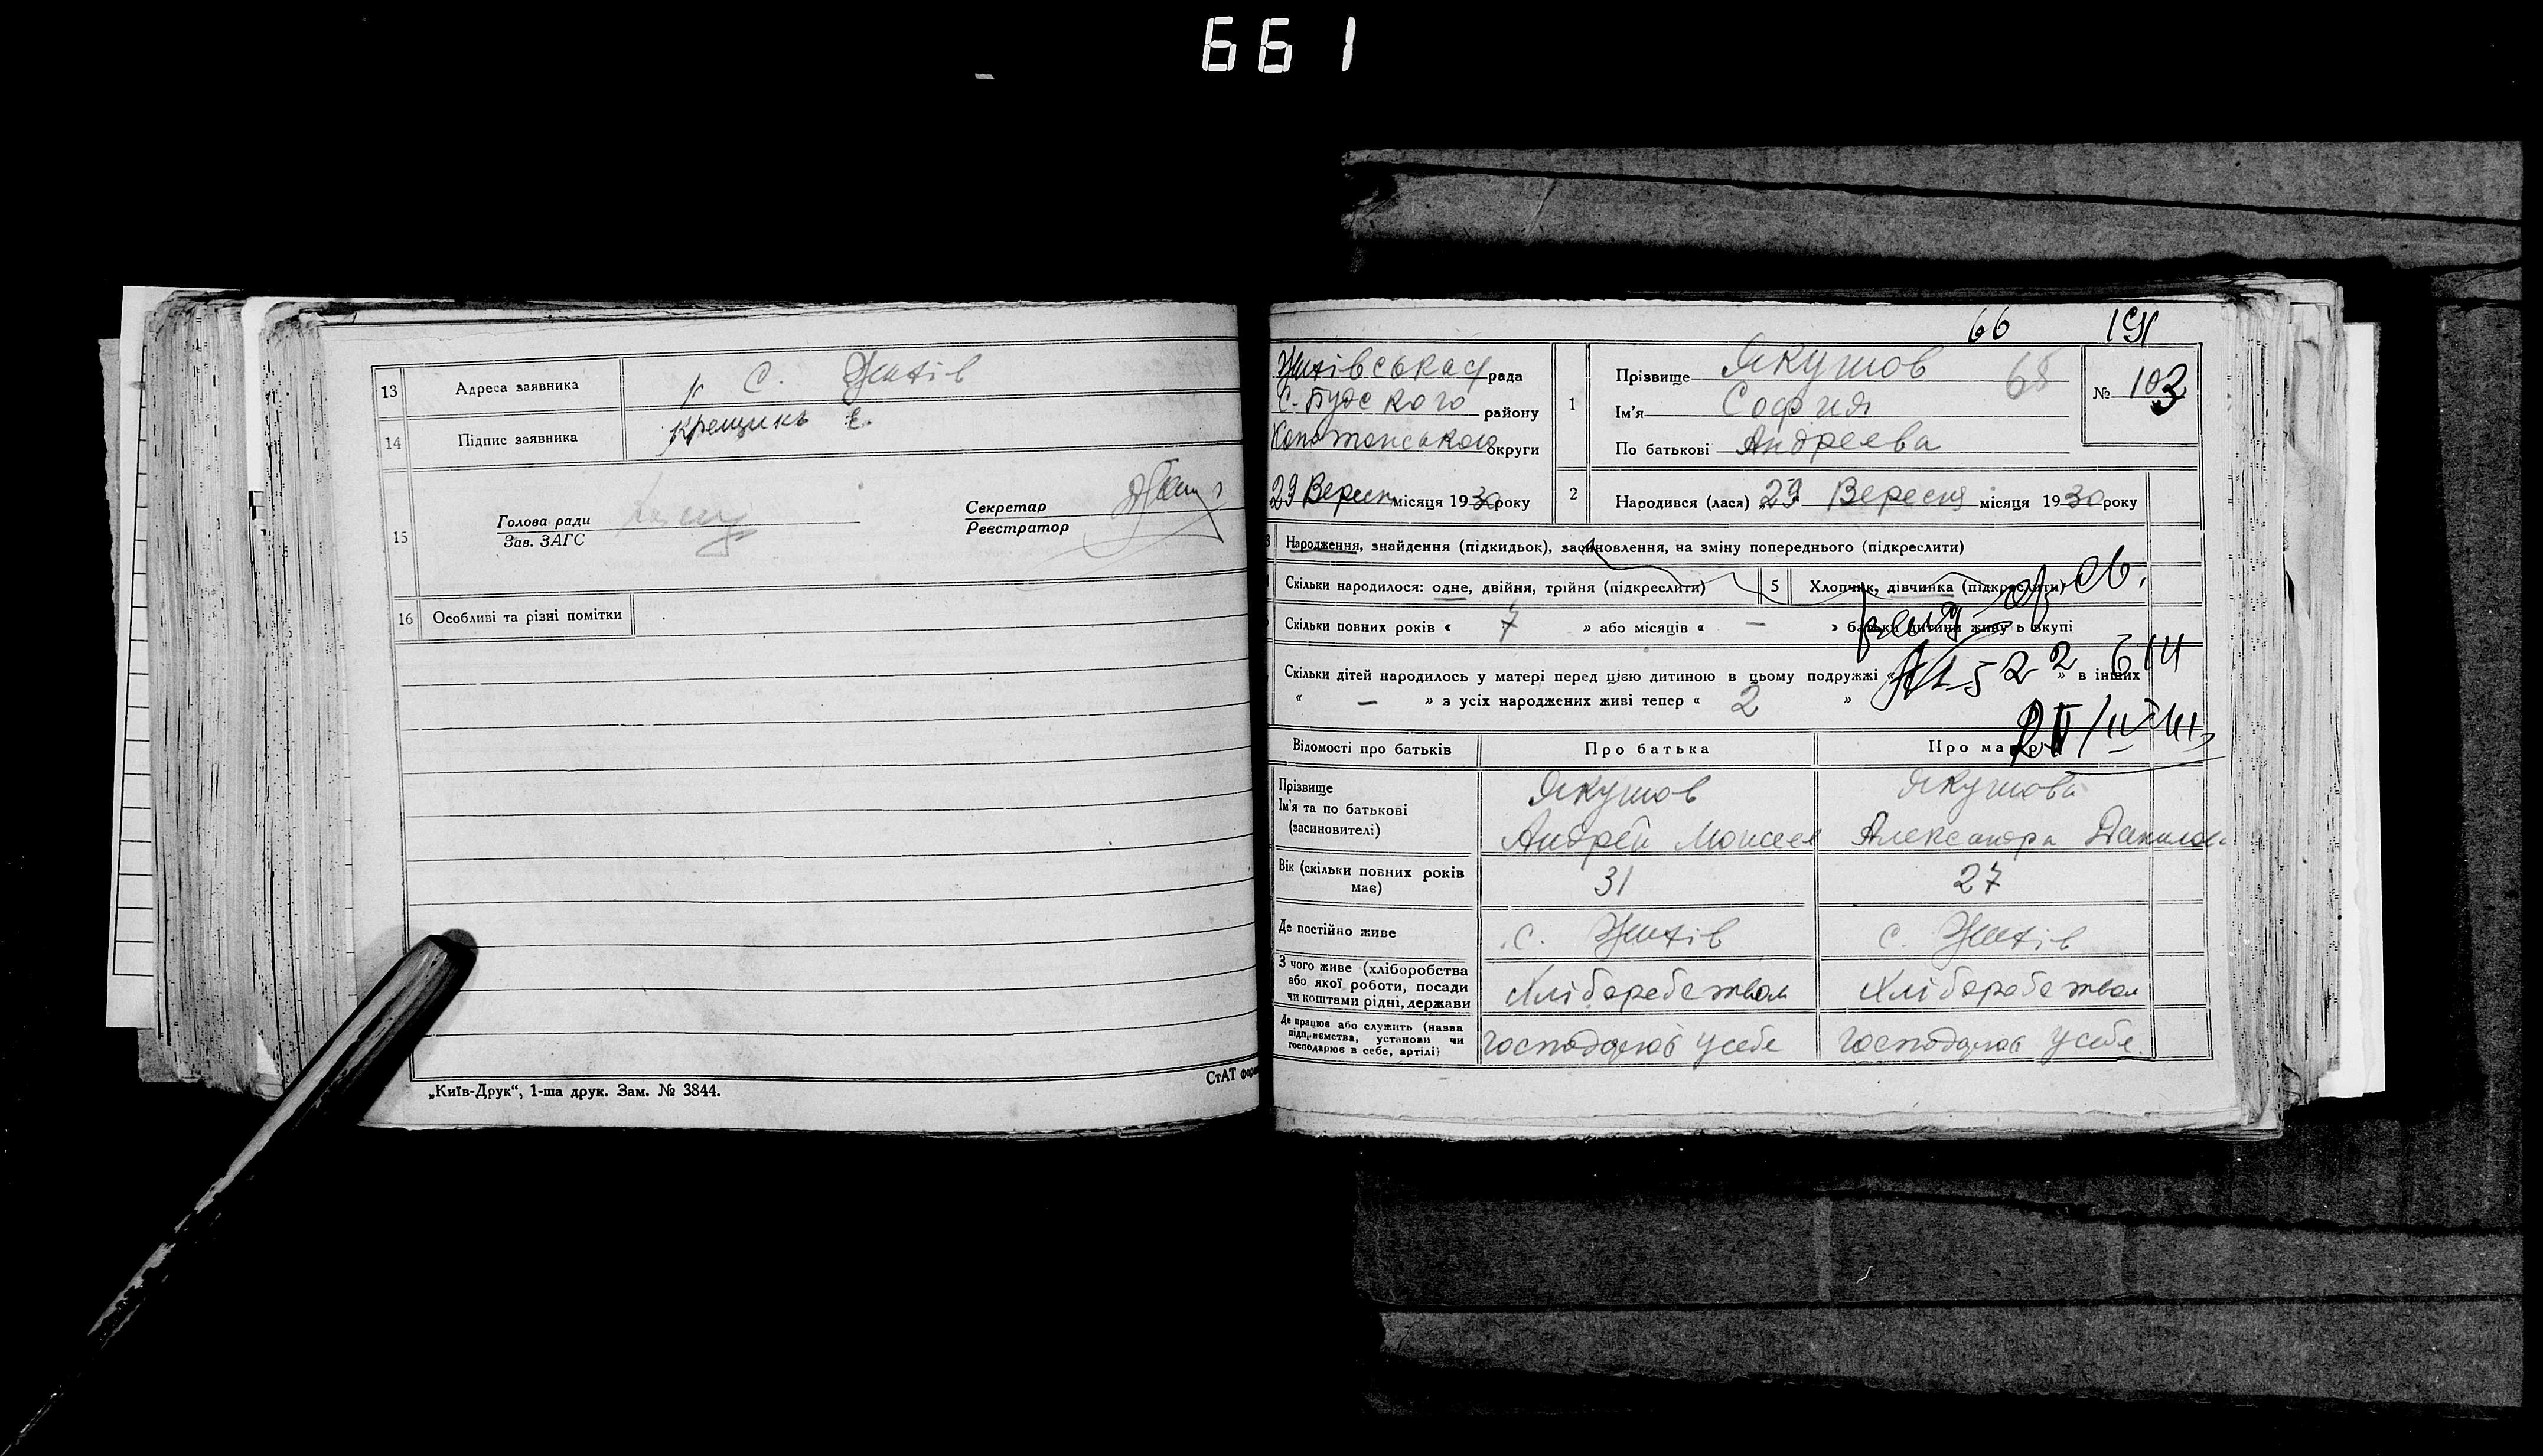 661
13 Адреса заявника с. Жихів
14 Підпис заявника Крещикъ Е.
15 Голова ради
Зав. ЗАГС
Секретар
Реєстратор
16 Особливі та різні помітки
„Київ-Друк“, 1-ша друк. Зам. № 3844.
СтАТ форм
66 191
Жихівська рада
С-Будського району
Конотопського округи
29 Вересн місяця 1930 року
1 Прізвище Якушов 68
Ім'я София
По батькові Андреева
№ 103
2 Народився (лася) 29 Вересня місяця 1930 року
Народження, знайдення (підкидьок), засиновлення, на зміну попереднього (підкреслити)
Скільки народилося: одне, двійня, трійня (підкреслити) 5 Хлопчик, дівчинка (підкреслити)
Скільки повних років « 7 » або місяців « — » батьки дитини живуть вкупі
Скільки дітей народилось у матері перед цією дитиною в цьому подружжі « 2 » в інших
« — » з усіх народжених живі тепер « 2 »
Відомості про батьків Про батька Про матір
Прізвище Якушов Якушова
Ім'я та по батькові
(засиновителі) Андрей Моисеев Александра Данилов
Вік (скільки повних років має) 31 27
Де постійно живе с. Жихів с. Жихів
З чого живе (хліборобства
або якої роботи, посади
чи коштами рідні, держави Хліборобством Хліборобством
Де працює або служить (назва
підприємства, установи чи
господарює в себе, артілі) господарює у себе господарює у себе